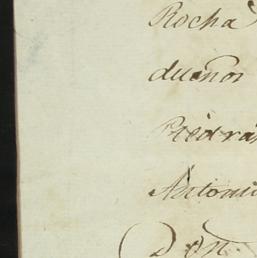 Rocha
dueños
Piedra
Antoni
Don